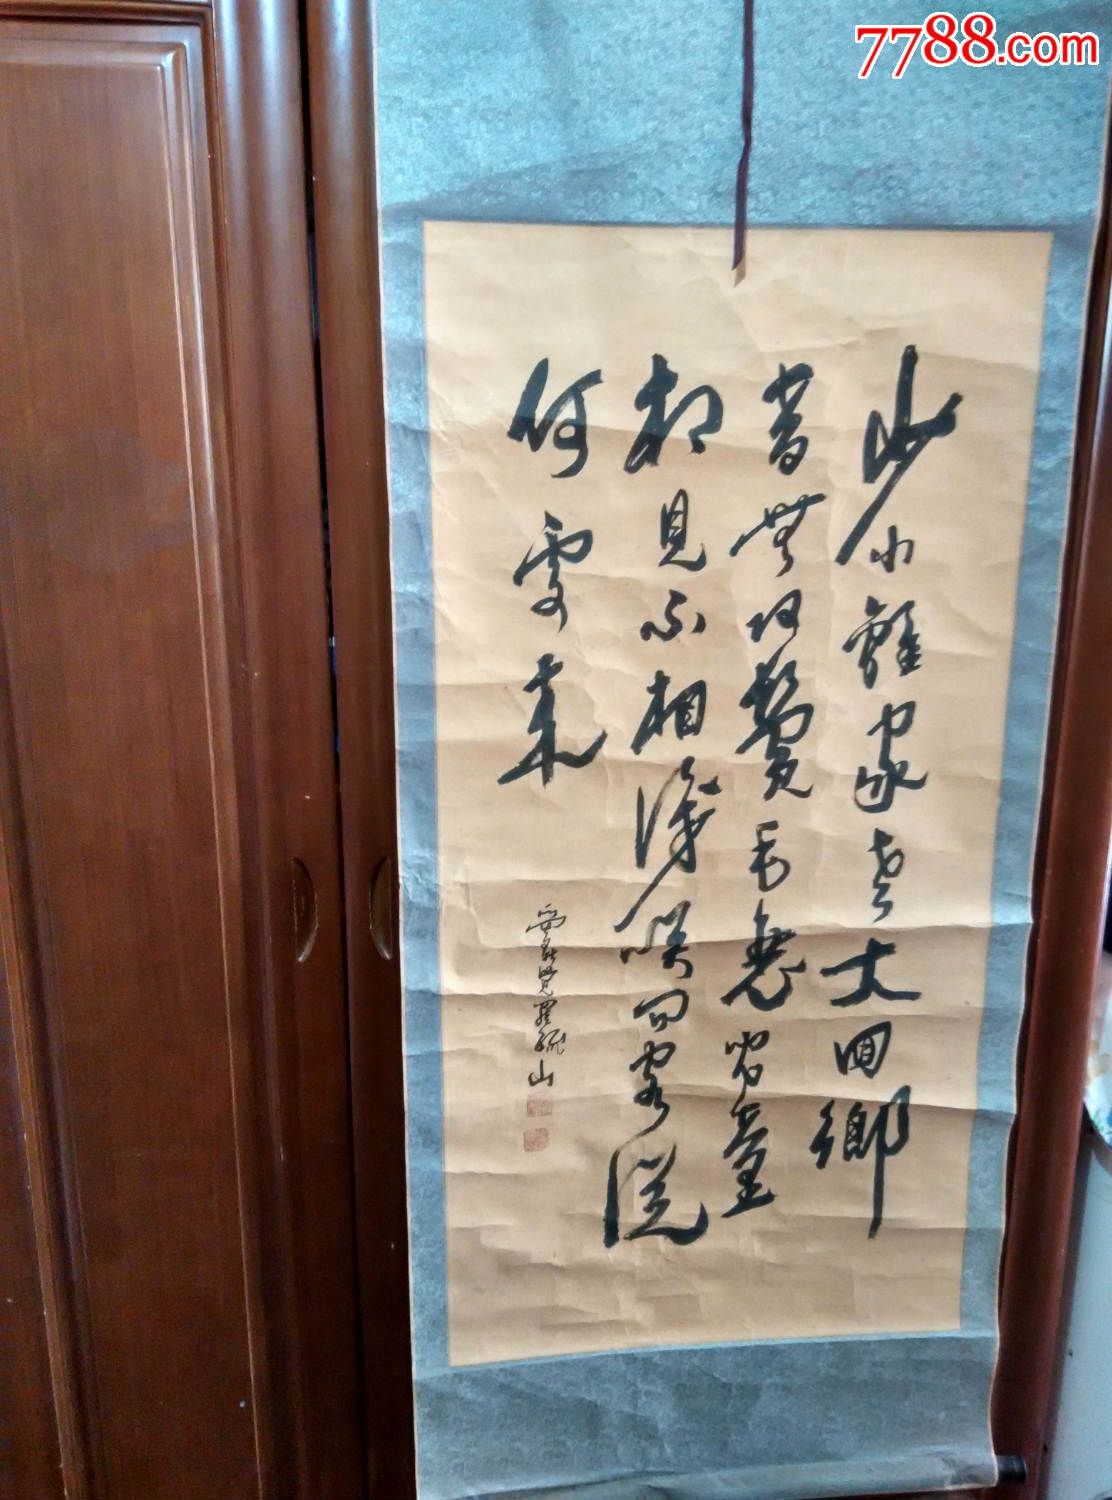 7788.com
少小離家老大回鄉
音無改鬢毛衰兒童
相見不相識咲問客從
何處來
愛新覺羅毓山